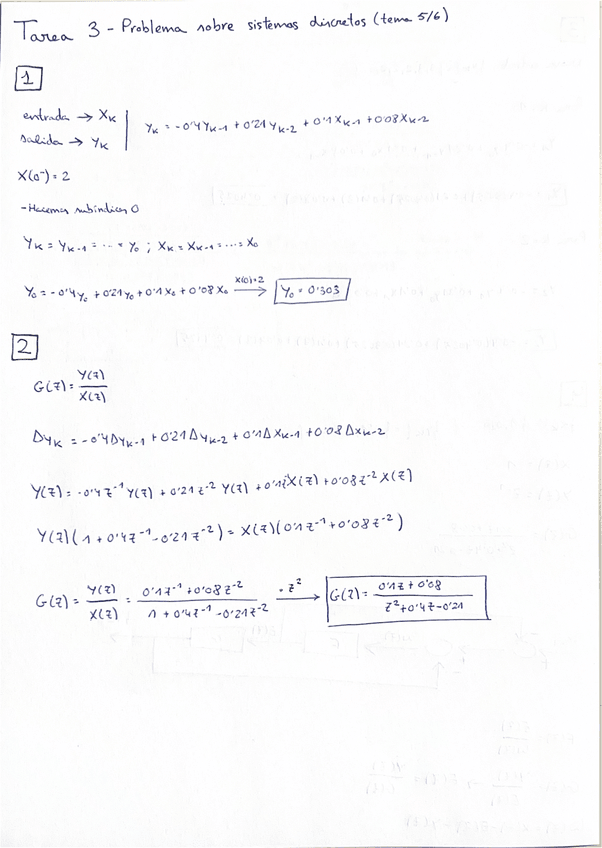 Tarea 3 - Problema sobre sistemas discretos (tema 5/6)
1
entrada → Xₖ | Yₖ = -0'4Yₖ₋₁ + 0'21Yₖ₋₂ + 0'1Xₖ₋₁ + 0'08Xₖ₋₂
salida → Yₖ
X(0⁻) = 2
- Hacemos subíndices 0
Yₖ = Yₖ₋₁ = ... = Y₀ ; Xₖ = Xₖ₋₁ = ... = X₀
Y₀ = -0'4Y₀ + 0'21Y₀ + 0'1X₀ + 0'08X₀ —X(0)=2→ Y₀ = 0'303
2
G(z) = Y(z)/X(z)
ΔYₖ = -0'4ΔYₖ₋₁ + 0'21ΔYₖ₋₂ + 0'1ΔXₖ₋₁ + 0'08ΔXₖ₋₂
Y(z) = -0'4z⁻¹Y(z) + 0'21z⁻²Y(z) + 0'1z⁻¹X(z) + 0'08z⁻²X(z)
Y(z)(1 + 0'4z⁻¹ - 0'21z⁻²) = X(z)(0'1z⁻¹ + 0'08z⁻²)
G(z) = Y(z)/X(z) = (0'1z⁻¹ + 0'08z⁻²)/(1 + 0'4z⁻¹ - 0'21z⁻²) —·z²→ G(z) = (0'1z + 0'08)/(z² + 0'4z - 0'21)